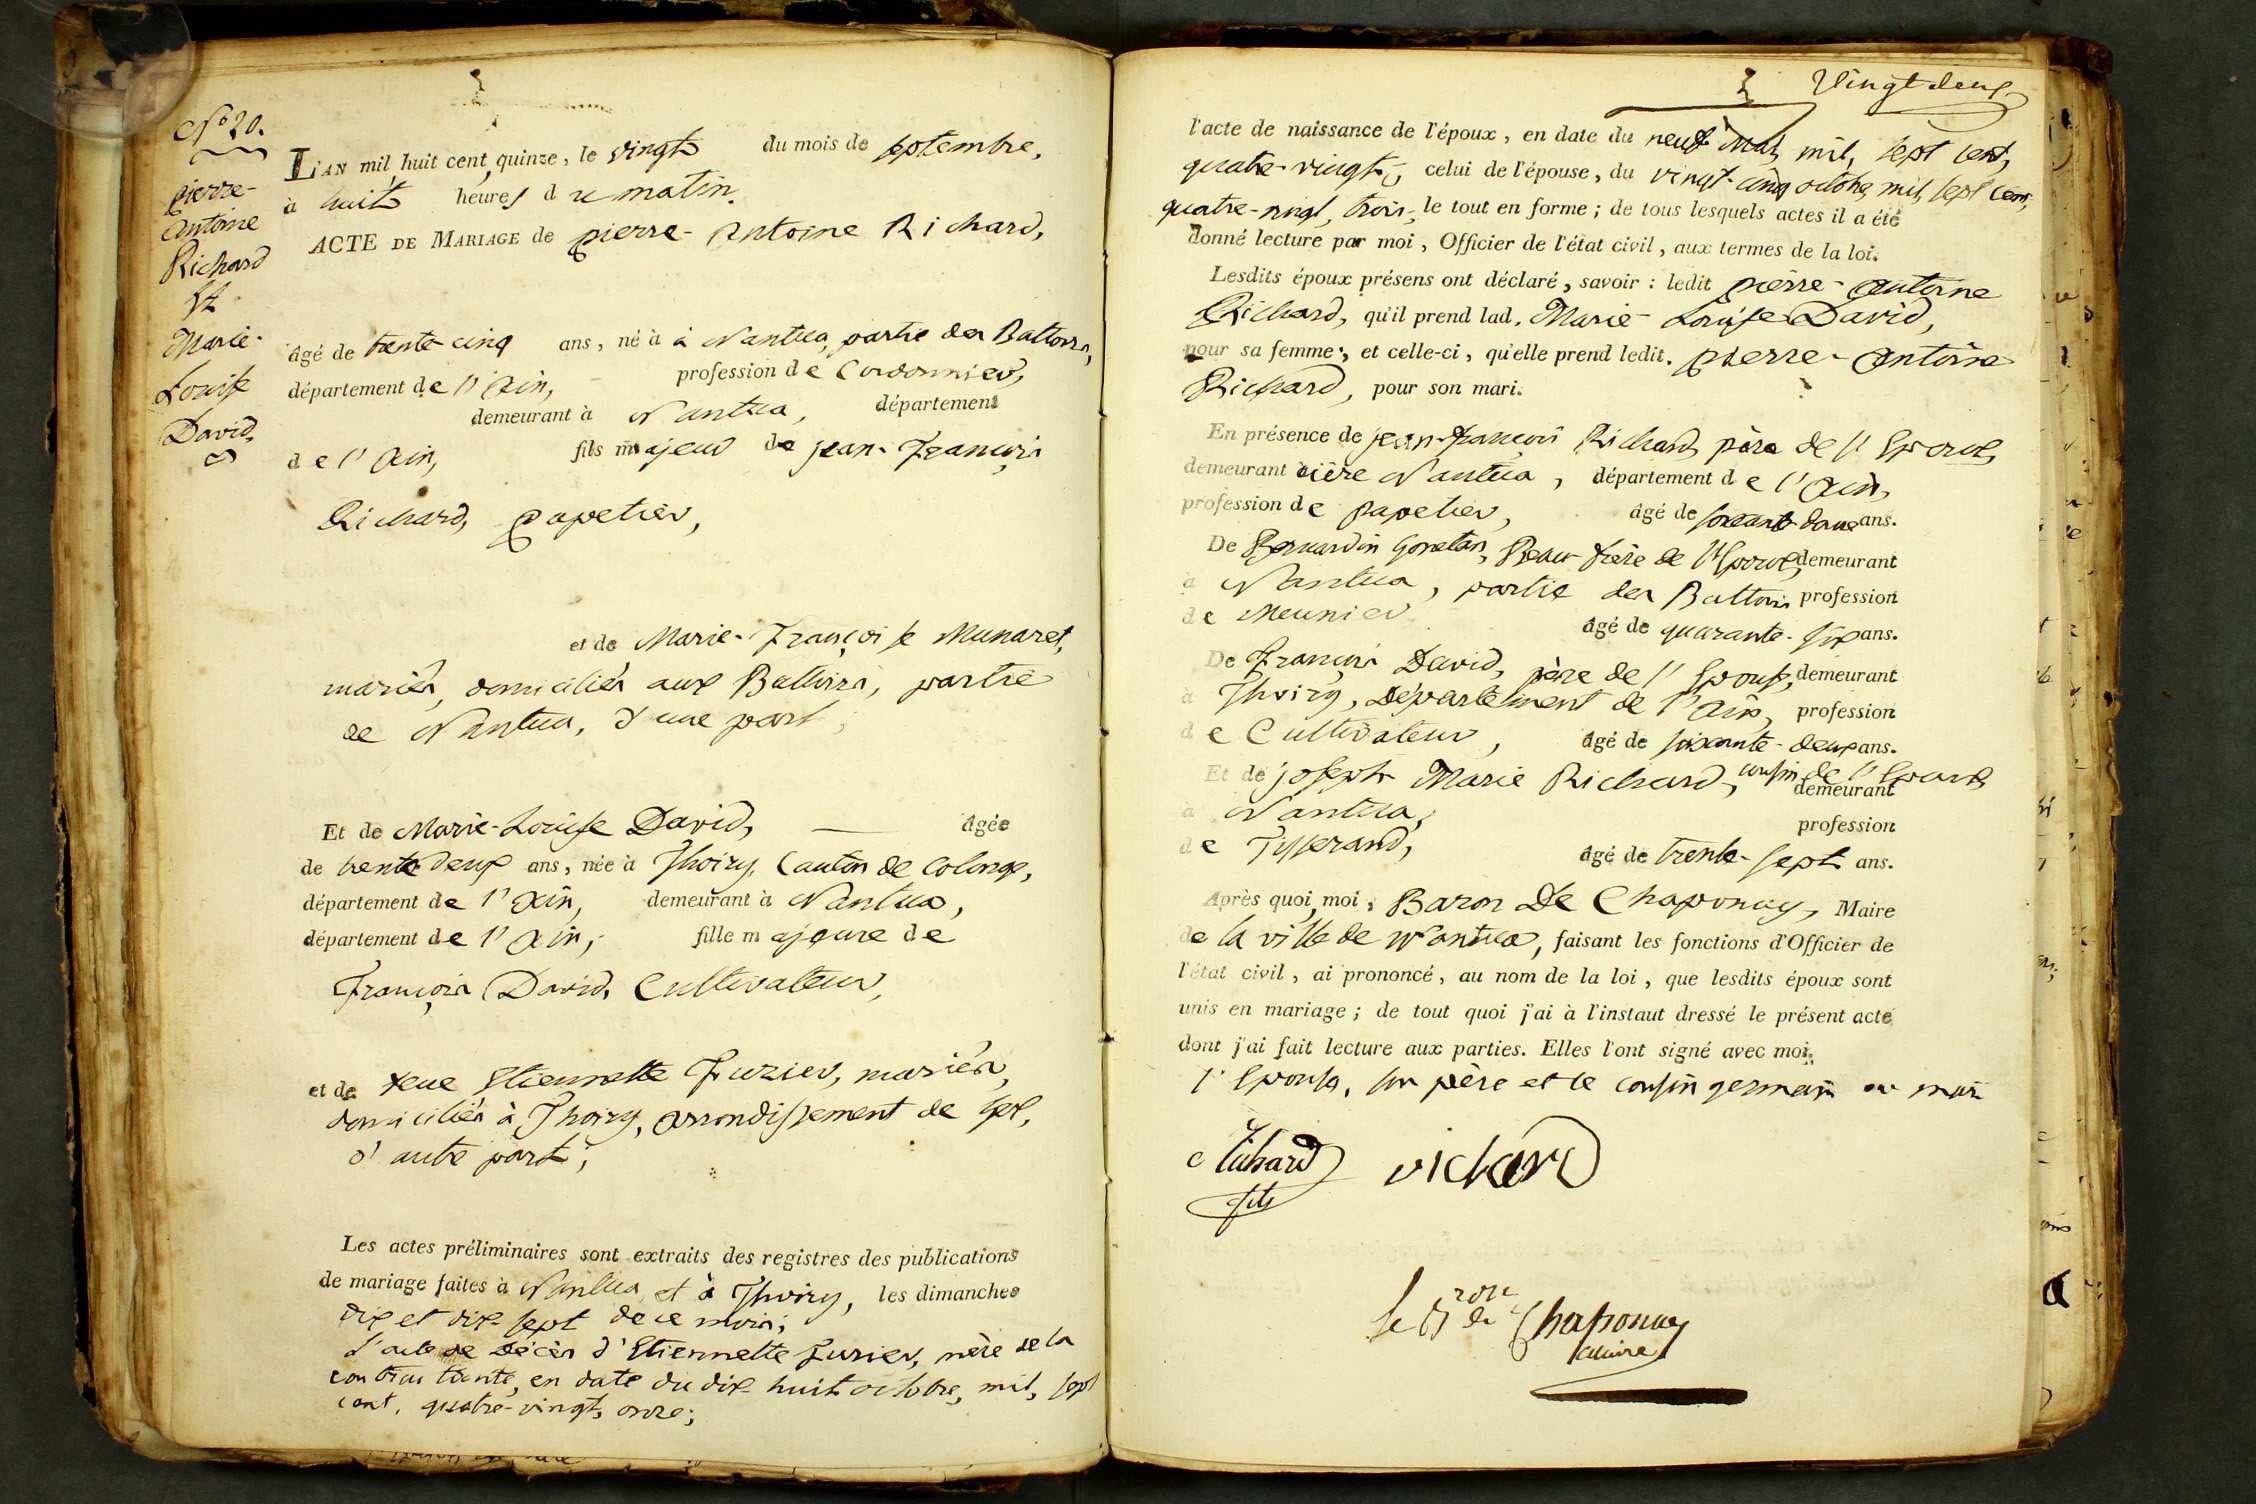 N.o 20.
pierre-
antoine
Richard
Et
Marie-
Louise
David,
L'AN mil huit cent quinze, le vingt du mois de septembre,
à huit heures du matin.
ACTE DE MARIAGE de pierre-Antoine Richard,
âgé de trente cinq ans, né à à Nantua, partie des Battoirs,
département de l'Ain, profession de Cordonnier,
demeurant à Nantua, département
de l'Ain, fils majeur de jean-François
Richard, papetier,
et de Marie-Françoise Munaret,
mariés, domiciliés aux Battoirs, partie
de Nantua, d'une part;
Et de Marie-Louise David, âgée
de trente deux ans, née à Thoiry, Canton de Colonge,
département de l'Ain, demeurant à Nantua,
département de l'Ain; fille majeure de
François David, Cultivateur,
et de feue Etiennette Fuzier, mariés,
domiciliés à Thoiry, arrondissement de Gex,
d'autre part;
Les actes préliminaires sont extraits des registres des publications
de mariage faites à Nantua et à Thoiry, les dimanches
dix et dix-sept de ce mois;
L'acte de décès d'Etiennette Fuzier, mère de la
contractante, en date du dix huit octobre, mil, sept
cent, quatre-vingt, onze;
Vingt deux
l'acte de naissance de l'époux, en date du neuf Mai, mil, sept cent,
quatre-vingt; celui de l'épouse, du vingt-cinq octobre, mil, sept cent,
quatre-vingt, trois; le tout en forme; de tous lesquels actes il a été
donné lecture par moi, Officier de l'état civil, aux termes de la loi.
Lesdits époux présens ont déclaré, savoir: ledit pierre-antoine
Richard, qu'il prend lad. Marie-Louise David,
pour sa femme; et celle-ci, qu'elle prend ledit. pierre-antoine
Richard, pour son mari.
En présence de jean-françois Richard, père de l'Epoux,
demeurant rière Nantua, département de l'Ain,
profession de papetier, âgé de soixante douze ans.
De Bernardin Goneton, Beau frère de l'Epoux, demeurant
à Nantua, partie des Battoirs profession
de Meunier âgé de quarante-six ans.
De François David, père de l'Epouse, demeurant
à Thoiry, Département de l'Ain, profession
de Cultivateur, âgé de soixante-deux ans.
Et de joseph Marie Richard, cousin de l'Epoux,
demeurant
à Nantua, profession
de Tisserand, âgé de trente-sept ans.
Après quoi, moi, Baron De Chaponay, Maire
de la ville de Nantua, faisant les fonctions d'Officier de
l'état civil, ai prononcé, au nom de la loi, que lesdits époux sont
unis en mariage; de tout quoi j'ai à l'instaut dressé le présent acte
dont j'ai fait lecture aux parties. Elles l'ont signé avec moi;
l'Epouse, son père et le cousin germain ou mari
Richard fils
richard
le Bron de Chaponay
maire